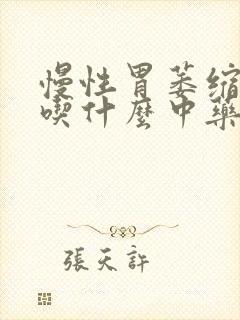 慢性胃萎縮
喫什麼中藥
張天許